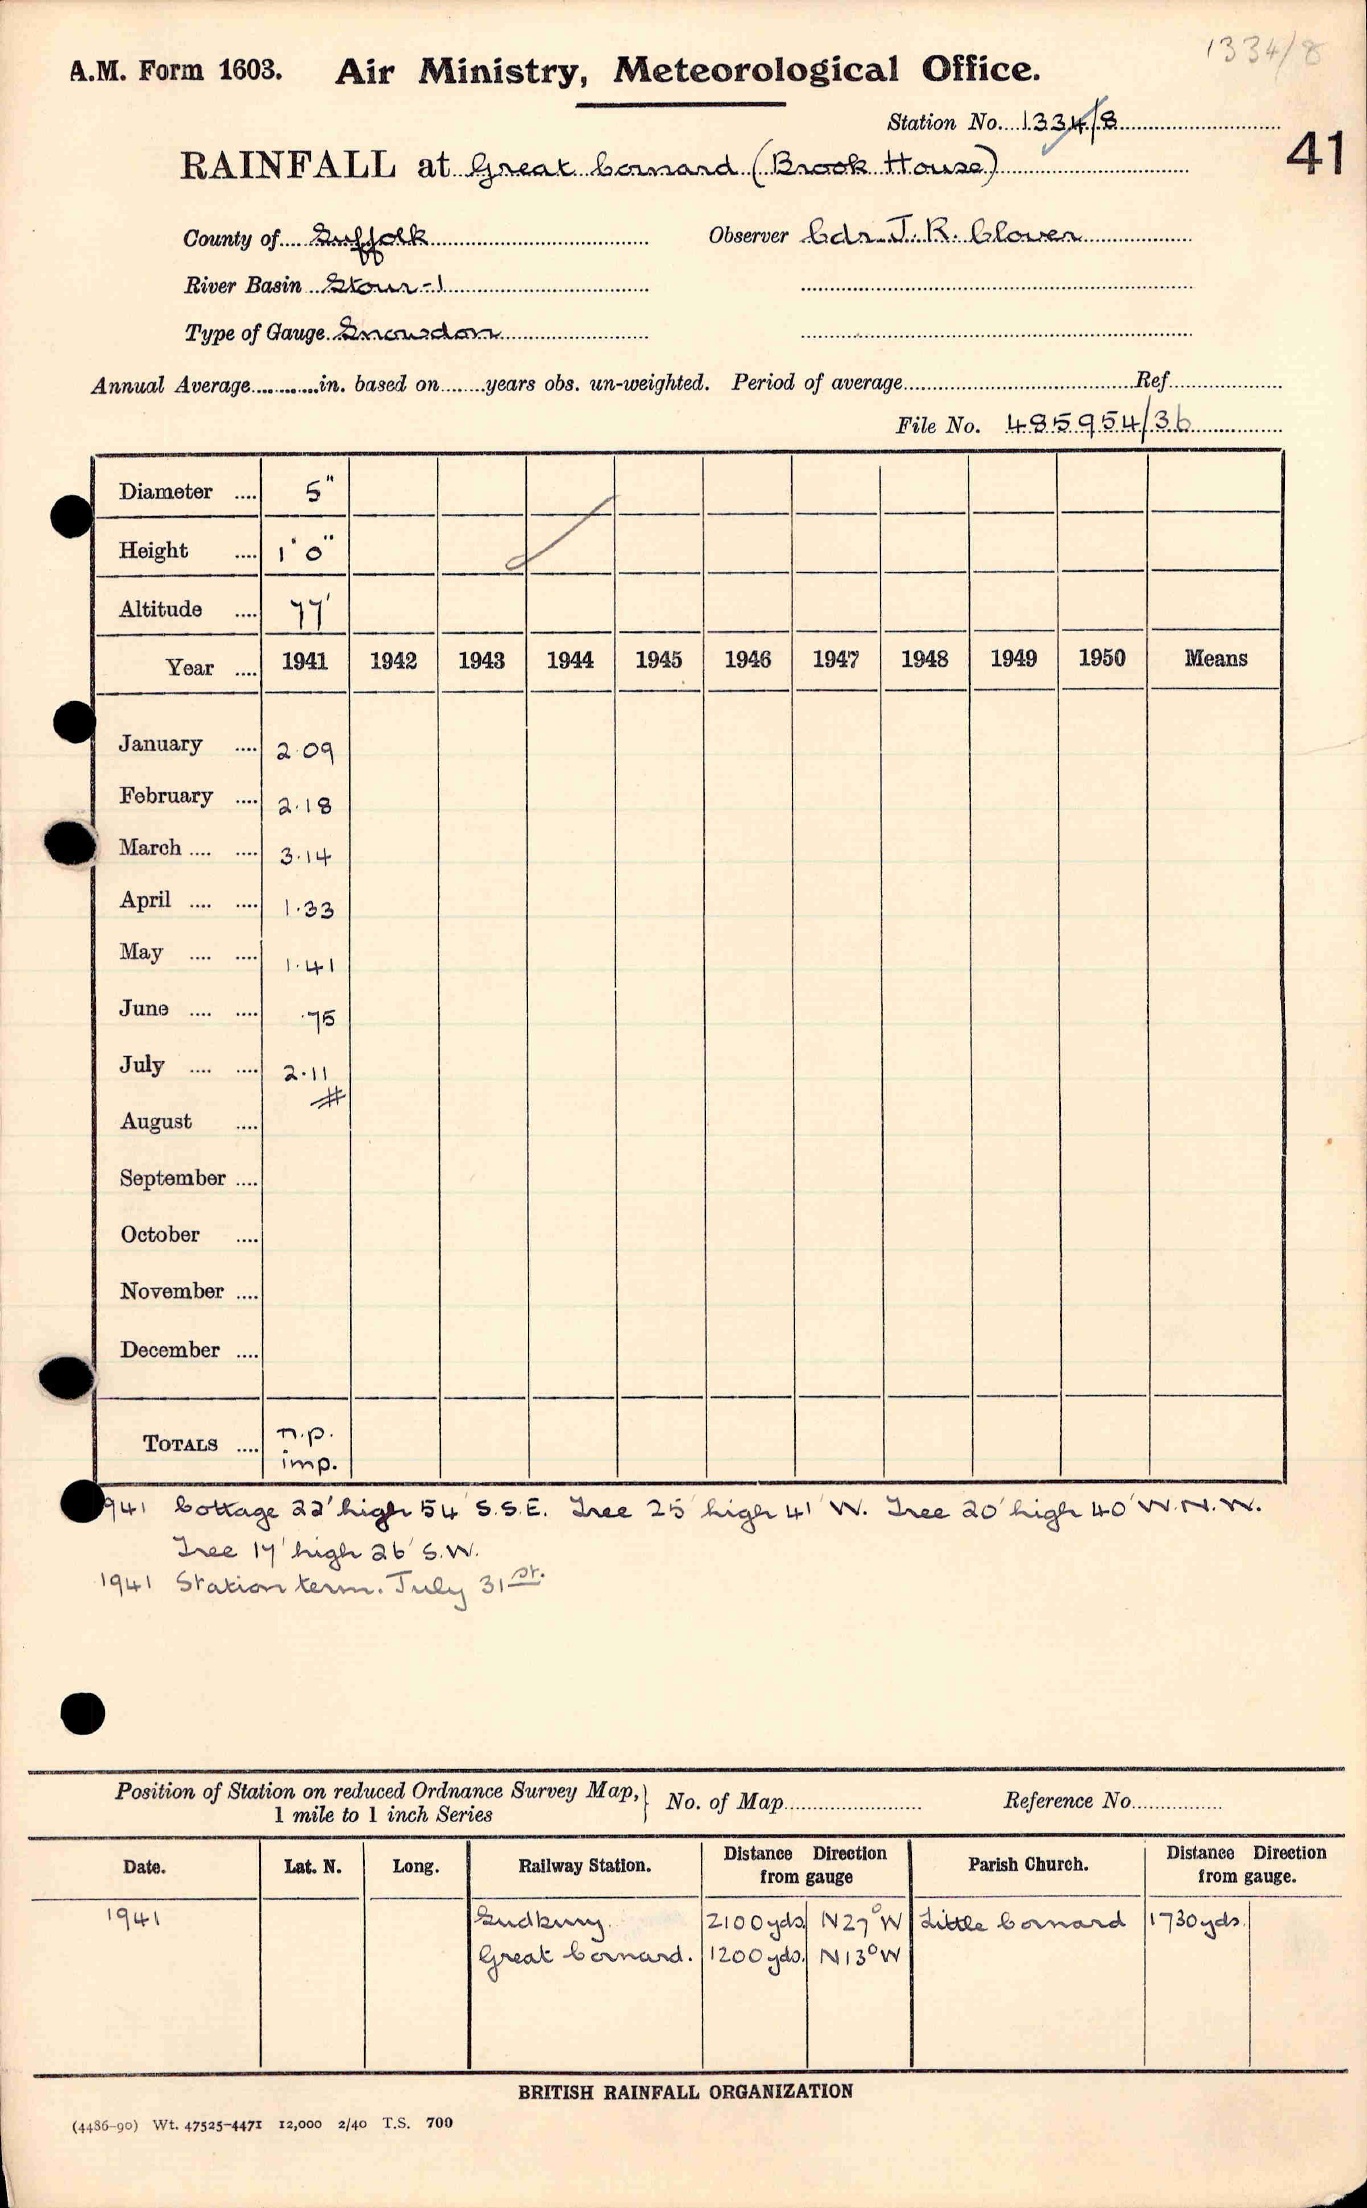 1334/8
A.M. Form 1603. Air Ministry, Meteorological Office.
Station No. 1334/8
41
RAINFALL at Great Cornard (Brook House)
County of Suffolk Observer Cdr. J. R. Clover
River Basin Stour-1
Type of Gauge Snowdon
Annual Average............in. based on........years obs. un-weighted. Period of average............Ref............
File No. 485954/36
Diameter .... 5"
Height .... 1' 0"
Altitude .... 77'
Year .... 1941 1942 1943 1944 1945 1946 1947 1948 1949 1950 Means
January .... 2.09
February .... 2.18
March .... .... 3.14
April .... .... 1.33
May .... .... 1.41
June .... .... .75
July .... .... 2.11
#
August ....
September ....
October ....
November ....
December ....
TOTALS .... n.p.
imp.
1941 Cottage 22' high 54' S.S.E. Tree 25' high 41' W. Tree 20' high 40' W.N.W.
Tree 17' high 26' S.W.
1941 Station term. July 31st.
Position of Station on reduced Ordnance Survey Map, } No. of Map............ Reference No............
1 mile to 1 inch Series
Date. Lat. N. Long. Railway Station. Distance Direction from gauge Parish Church. Distance Direction from gauge.
1941 Sudbury. 2100 yds. N27°W Little Cornard 1730 yds.
Great Cornard. 1200 yds. N13°W
BRITISH RAINFALL ORGANIZATION
(4486-90) Wt. 47525-4471 12,000 2/40 T.S. 700